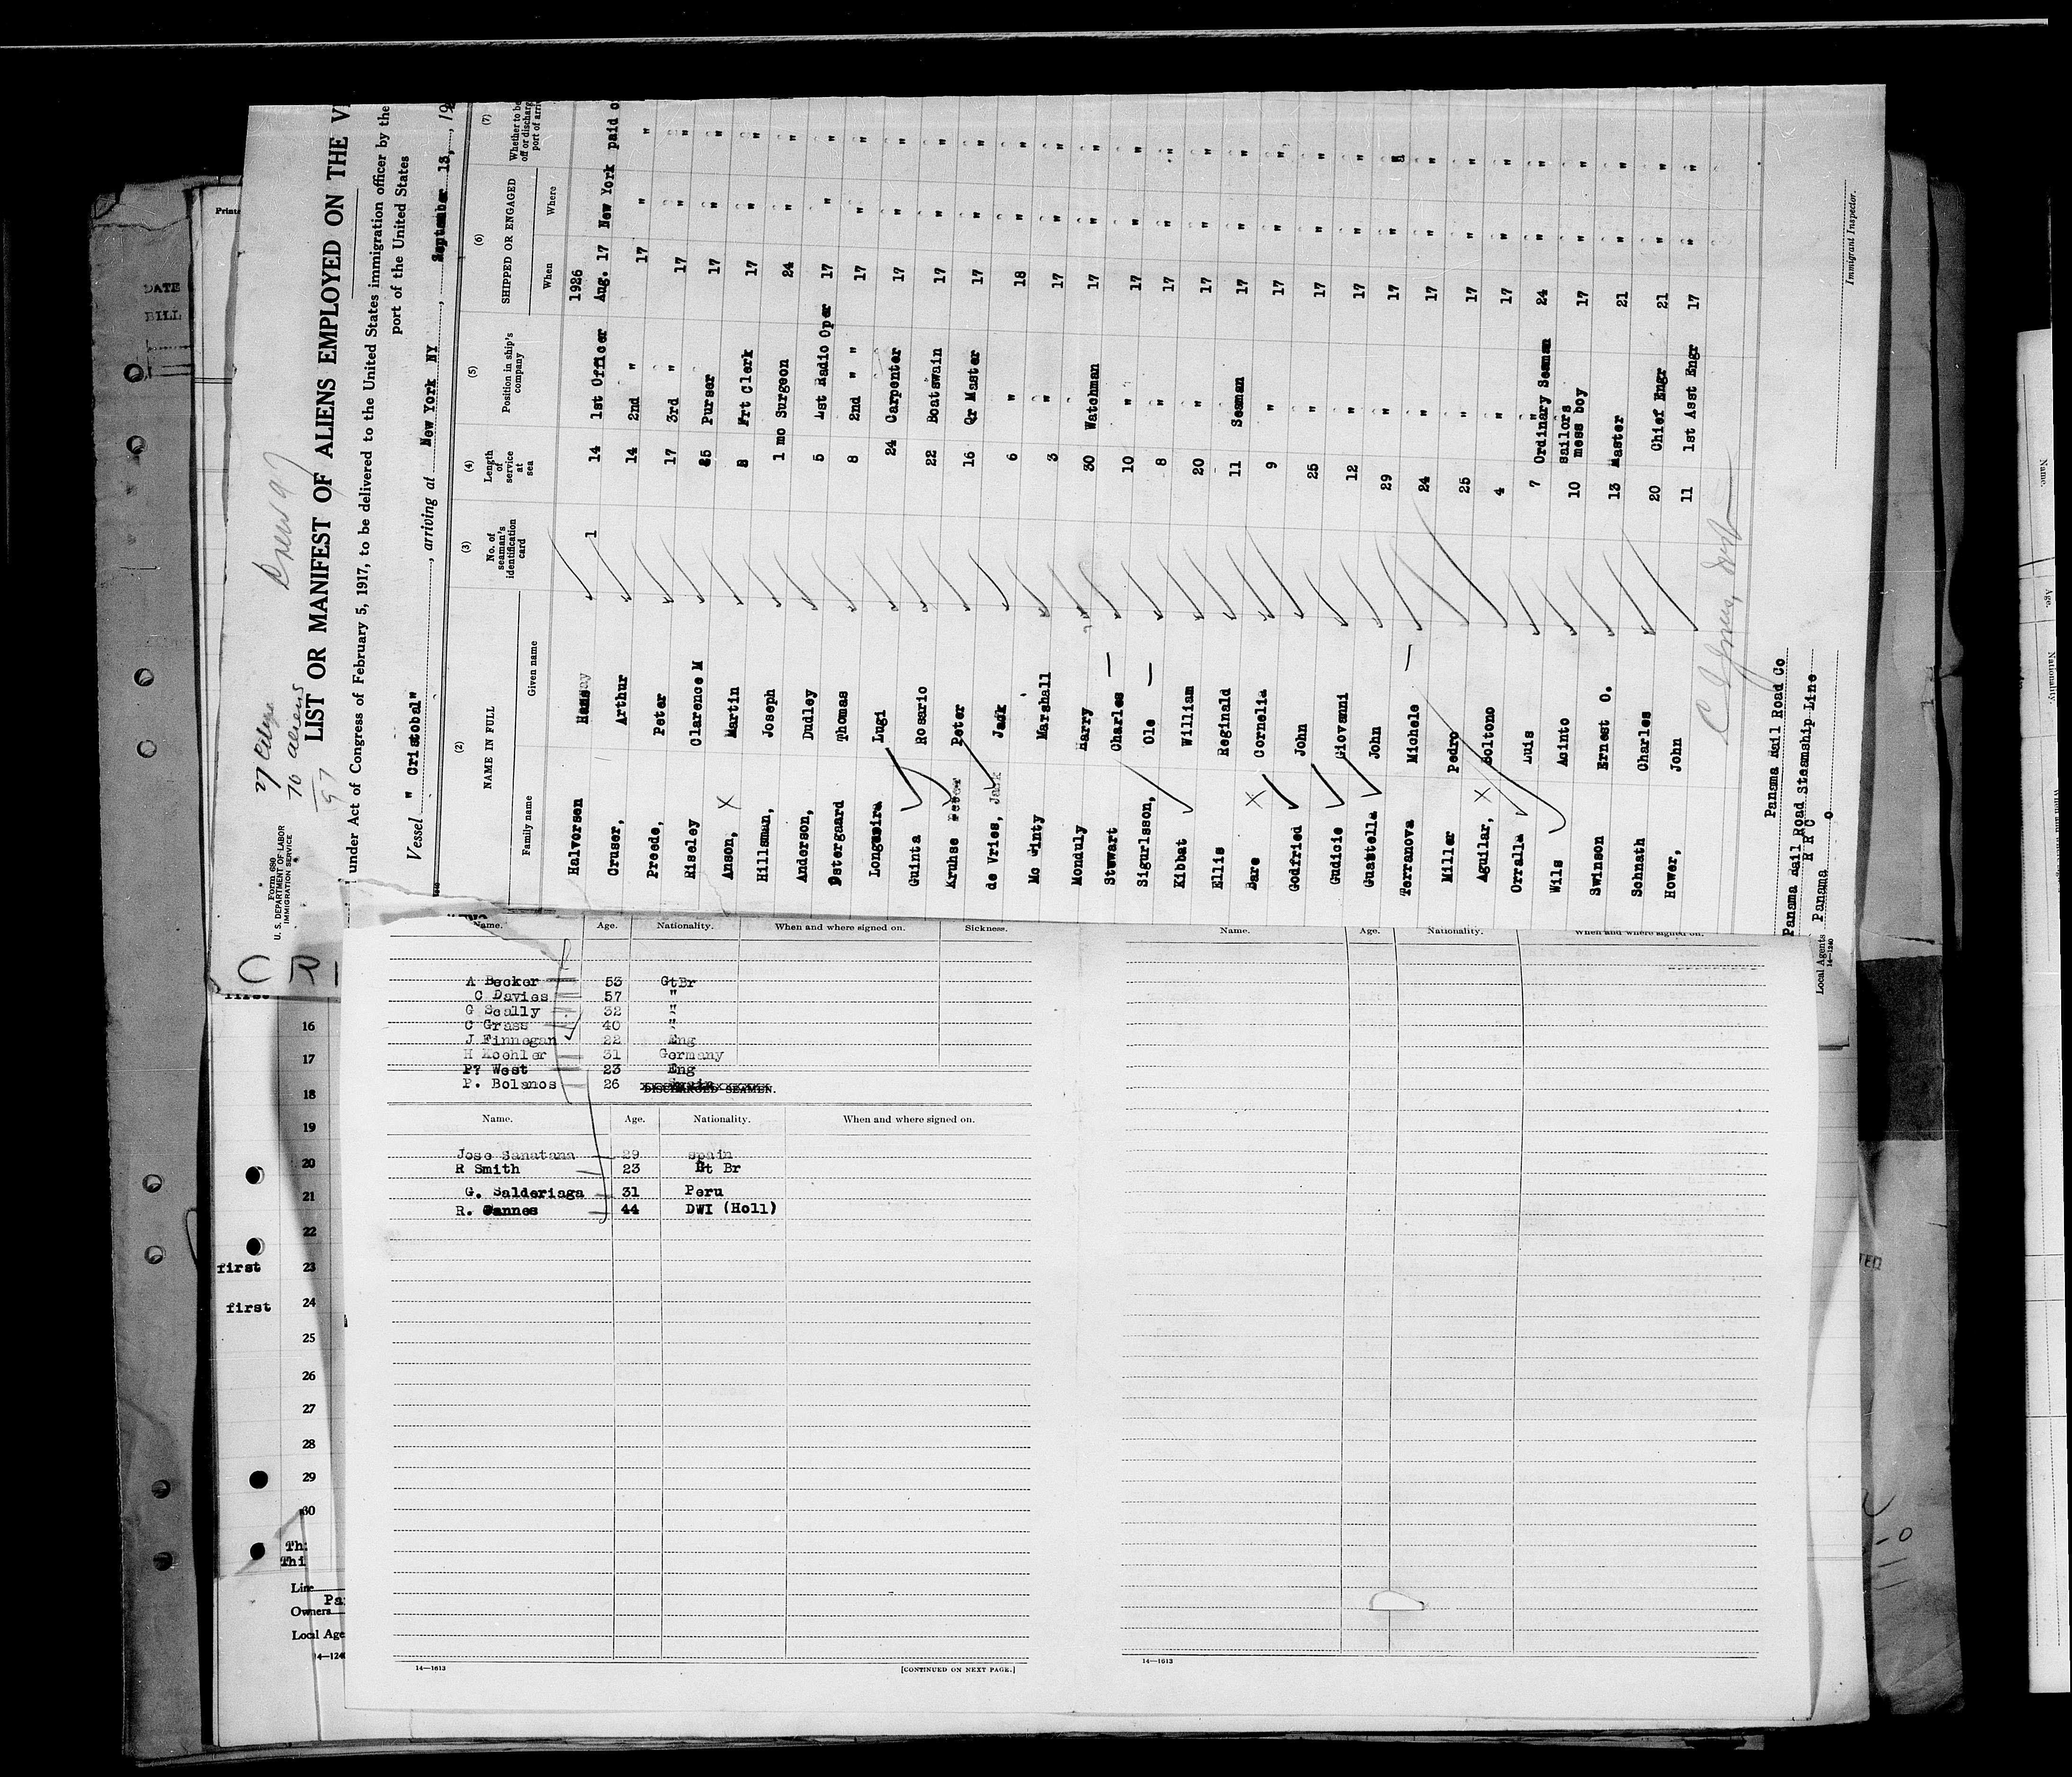 Crew 97
76 aliens
97
Form 680
U. S. DEPARTMENT OF LABOR
IMMIGRATION SERVICE
LIST OR MANIFEST OF ALIENS EMPLOYED ON THE
under Act of Congress of February 5, 1917, to be delivered to the United States immigration officer by the
port of the United States
Vessel " Cristobal" , arriving at New York NY , September 13, , 19
(2) (3) (4) (5) (6) (7)
NAME IN FULL No. of seaman's identification card Length of service at sea Position in ship's company SHIPPED OR ENGAGED Whether to be
off or discharg
port of arriv
Family name Given name When Where
1926
Halvorsen 1 14 1st Officer Aug. 17 New York paid
Cruser, Arthur 14 2nd " 17 " "
Preede, Peter 17 3rd " 17 " "
Riseley Clarence M Purser 17 " "
Anson, X Martin Frt Clerk 17 " "
Hillsman, Joseph 1 mo Surgeon 24 " "
Anderson, Dudley 5 1st Radio Oper 17 " "
Ostergaard Thomas 8 2nd " " 17 " "
Longueira Lugi 24 Carpenter 17 " "
Guinta Rosario 22 Boatswain 17 " "
Kruhse Peter 16 Qr Master 17 " "
de Vries, Jack 6 " 18 " "
Mc Ginty Marshall 3 " 17 " "
Monduly Harry 30 Watchman 17 " "
Stewart Charles — 10 " 17 " "
Sigurlsson, Ole — 8 " 17 " "
Kibbat William 20 " 17 " "
Ellis Reginald 11 Seaman 17 " "
Bare X Cornelia 9 " 17 " "
Godfried John 25 " 17 " "
Gudicie Giovanni 12 " 17 " "
Guastella John 29 " 17 " "
Terranova Michele — 24 " 17 " "
Miller Pedro 25 " 17 " "
Aguilar, X Boltono 4 " 17 " "
Orralla Luis 7 Ordinary Seaman 24 " "
Wils Acinto 10 sailors mess boy 17 " "
Swinson Ernest O. 13 Master 21 " "
Schnath Charles 20 Chief Engr 21 " "
Hower, John 11 1st Asst Engr 17 " "
Immigrant Inspector.
Panama Rail Road Co
Panama Rail Road Steamship Line
Local Agents Panama R R C o
14—1240
Name. Age. Nationality. When and where signed on. Sickness.
A Becker 53 GtBr
C Davies 57 "
G Scally 32 "
C Grass 40 "
J Finnegan 22 Eng
H Koehler 31 Germany
P? West 23 Eng
P. Bolanos 26
DISCHARGED SEAMEN.
Name. Age. Nationality. When and where signed on.
Jose Sanatana 29 spain
R Smith 23 Gt Br
G. Salderiaga 31 Peru
R. Cannes 44 DWI (Holl)
14—1613 [CONTINUED ON NEXT PAGE.]
Name. Age. Nationality. When and where signed on.
14—1613
DATE
BILL
first
16
17
18
19
20
21
22
first 23
first 24
25
26
27
28
29
30
Thi
Line
Owners
Local Age
Name.
Age.
Nationality.